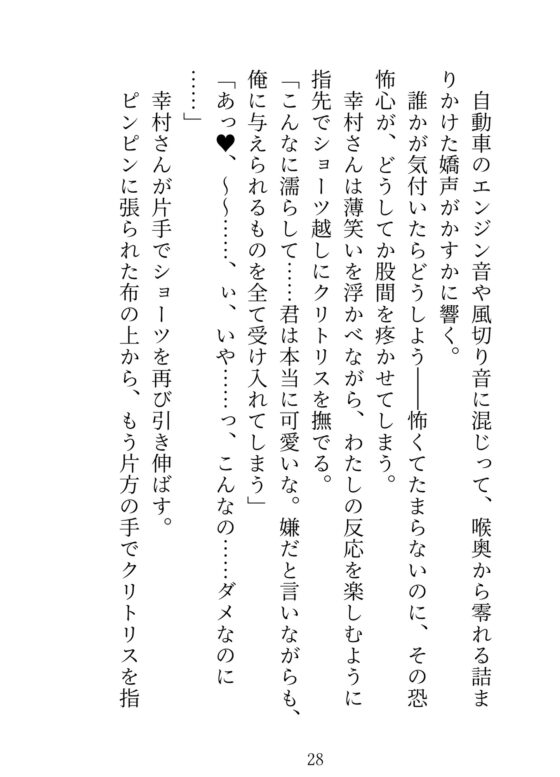 自動車のエンジン音や風切り音に混じって、喉奥から零れる詰ま
りかけた嬌声がかすかに響く。
　誰かが気付いたらどうしよう――怖くてたまらないのに、その恐
怖心が、どうしてか股間を疼かせてしまう。
　幸村さんは薄笑いを浮かべながら、わたしの反応を楽しむように
指先でショーツ越しにクリトリスを撫でる。
「こんなに濡らして……君は本当に可愛いな。嫌だと言いながらも、
俺に与えられるものを全て受け入れてしまう」
「あっ♥、～～……、ぃ、いや……っ、こんなの……ダメなのに
……」
　幸村さんが片手でショーツを再び引き伸ばす。
　ピンピンに張られた布の上から、もう片方の手でクリトリスを指
28